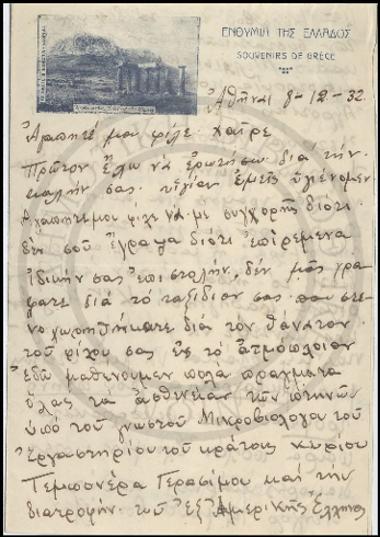 ΕΝΘΥΜΙΑ ΤΗΣ ΕΛΛΑΔΟΣ
SOUVENIRS DE GRÈCE
Ἀθῆναι 8-12-32
Ἀγαπητέ μου φίλε χαῖρε
Πρῶτον ἔλω νά ἐρωτήσω διά τήν
καλήν σας ὑγίαν ἐμεῖς ὑγιένομεν
Ἀγαπητέ μου φίλε νά με συγχορῆς διότι
δέν σοῦ ἔγραψα διότι ἐπερέμενα
ἰδικήν σας ἐπιστολήν, δέν μᾶς γρα
φατε διά τό ταξίδιον σας που στε
νοχωρηθήκατε διά τόν θάνατον
τοῦ φίλου σας εἰς τό ἀτμόπλοιον
ἐδῶ μαθενουμεν πολά πραγματα
ὅλας τα ἀσθενείαν τῶν πτηνῶν
ὑπό τοῦ γνωστοῦ Μικροβιολογου τοῦ
Ἐργαστηρίου τοῦ κράτους κυρίου
Τεμπονέρα Γερασίμου και τήν
διατροφήν τοῦ ἐξ Ἀμερικῆς Ἕλληνος